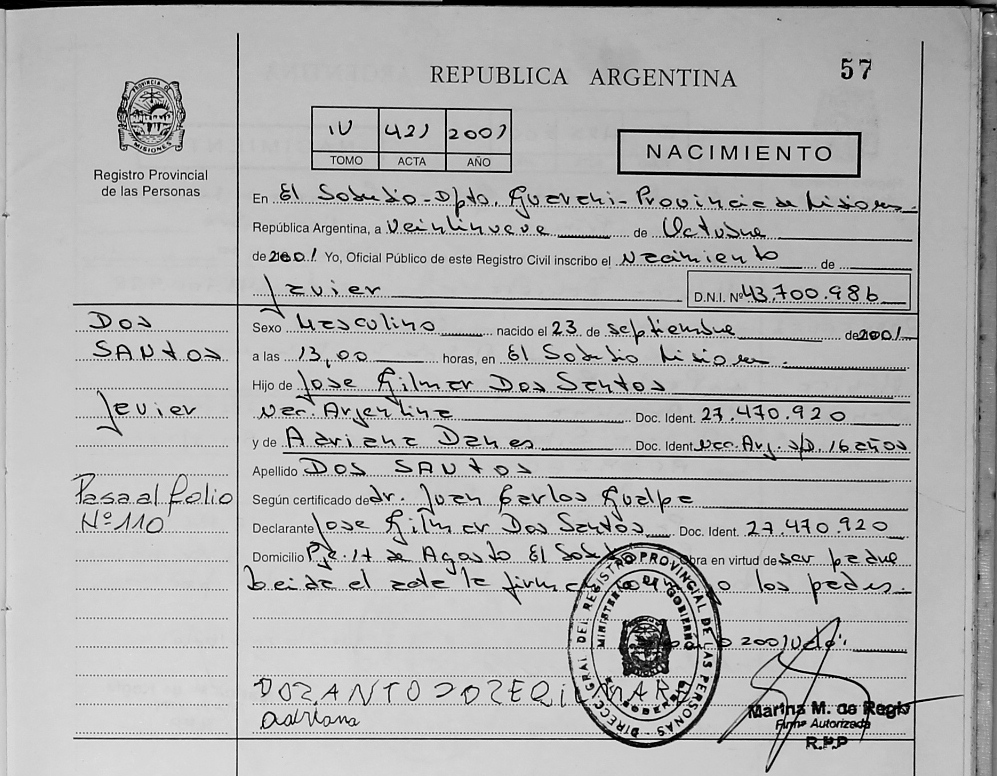 57
REPUBLICA ARGENTINA
PROVINCIA DE
MISIONES
Registro Provincial
de las Personas
IV 421 2001
TOMO ACTA AÑO
NACIMIENTO
En El Soberbio - Dpto. Guarani - Provincia de Misiones.
República Argentina, a Veintinueve de Octubre
de 2001 Yo, Oficial Público de este Registro Civil inscribo el Nacimiento de
Javier D.N.I. Nº 43.700.986
Sexo Masculino nacido el 23 de septiembre de 2001
a las 13,00 horas, en El Soberbio Misiones.
Hijo de Jose Gilmar Dos Santos
Nac. Argentina Doc. Ident. 27.470.920
y de Adriana Danes Doc. Ident. Nac. Arg. s/D. 16 años
Apellido DOS SANTOS
Según certificado de dr. Juan Carlos Gualpa
Declarante Jose Gilmar Dos Santos Doc. Ident. 27.470.920
Domicilio Pje. 17 de Agosto El Sober obra en virtud de ser padre
Leida el acta la firman o los padres.
2001 Vale.
DOS
SANTOS
Javier
Pasa al folio
Nº 110
DIRECC. GRAL DEL REGISTRO PROVINCIAL DE LAS PERSONAS
MINISTERIO DE GOBIERNO
Adriana
Marina M. de Regis
Firma Autorizada
R.P.P